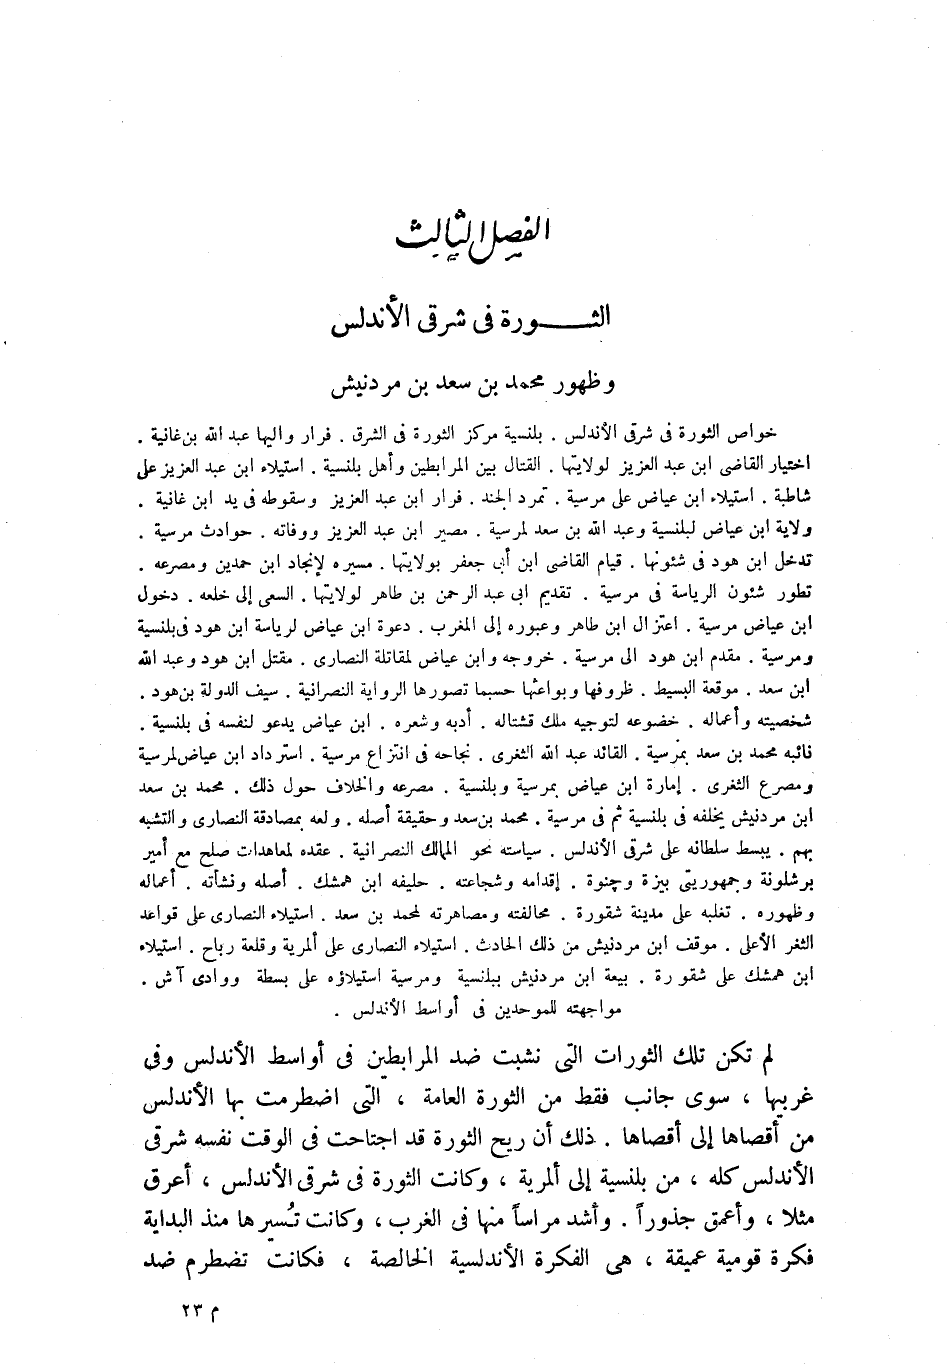 الفصل الثالث
الثـــورة فى شرقى الأندلس
وظهور محمد بن سعد بن مردنيش
خواص الثورة فى شرقى الأندلس . بلنسية مركز الثورة فى الشرق . فرار واليها عبد الله بن غانية .
اختيار القاضى ابن عبد العزيز لولايتها . القتال بين المرابطين وأهل بلنسية . استيلاء ابن عبد العزيز على
شاطبة . استيلاء ابن عياض على مرسية . تمرد الجند . فرار ابن عبد العزيز وسقوطه فى يد ابن غانية .
ولاية ابن عياض لبلنسية وعبد الله بن سعد لمرسية . مصير ابن عبد العزيز ووفاته . حوادث مرسية .
تدخل ابن هود فى شئونها . قيام القاضى ابن أبى جعفر بولايتها . مسيره لإنجاد ابن حمدين ومصرعه .
تطور شئون الرياسة فى مرسية . تقديم ابى عبد الرحمن بن طاهر لولايتها . السعى إلى خلعه . دخول
ابن عياض مرسية . اعتزال ابن طاهر وعبوره إلى المغرب . دعوة ابن عياض لرياسة ابن هود فى بلنسية
ومرسية . مقدم ابن هود الى مرسية . خروجه وابن عياض لمقاتلة النصارى . مقتل ابن هود وعبد الله
ابن سعد . موقعة البسيط . ظروفها وبواعثها حسبما تصورها الرواية النصرانية . سيف الدولة بن هود .
شخصيته وأعماله . خضوعه لتوجيه ملك قشتاله . أدبه وشعره . ابن عياض يدعو لنفسه فى بلنسية .
نائبه محمد بن سعد بمرسية . القائد عبد الله الثغرى . نجاحه فى انتزاع مرسية . استرداد ابن عياض لمرسية
ومصرع الثغرى . إمارة ابن عياض بمرسية وبلنسية . مصرعه والخلاف حول ذلك . محمد بن سعد
ابن مردنيش يخلفه فى بلنسية ثم فى مرسية . محمد بن سعد وحقيقة أصله . ولعه بمصادقة النصارى والتشبه
بهم . يبسط سلطانه على شرقى الأندلس . سياسته نحو الممالك النصرانية . عقده لمعاهدات صلح مع أمير
برشلونة وجمهوريتى بيزة وچنوة . إقدامه وشجاعته . حليفه ابن همشك . أصله ونشأته . أعماله
وظهوره . تغلبه على مدينة شقورة . محالفته ومصاهرته لمحمد بن سعد . استيلاء النصارى على قواعد
الثغر الأعلى . موقف ابن مردنيش من ذلك الحادث . استيلاء النصارى على ألمرية وقلعة رباح . استيلاء
ابن همشك على شقورة . بيعة ابن مردنيش ببلنسية ومرسية استيلاؤه على بسطة ووادى آش .
مواجهته للموحدين فى أواسط الأندلس .
لم تكن تلك الثورات التى نشبت ضد المرابطين فى أواسط الأندلس وفى
غربيها ، سوى جانب فقط من الثورة العامة ، التى اضطرمت بها الأندلس
من أقصاها إلى أقصاها . ذلك أن ريح الثورة قد اجتاحت فى الوقت نفسه شرقى
الأندلس كله ، من بلنسية إلى ألمرية ، وكانت الثورة فى شرقى الأندلس ، أعرق
مثلا ، وأعمق جذوراً . وأشد مراساً منها فى الغرب ، وكانت تُسيرها منذ البداية
فكرة قومية عميقة ، هى الفكرة الأندلسية الخالصة ، فكانت تضطرم ضد
م ٢٣